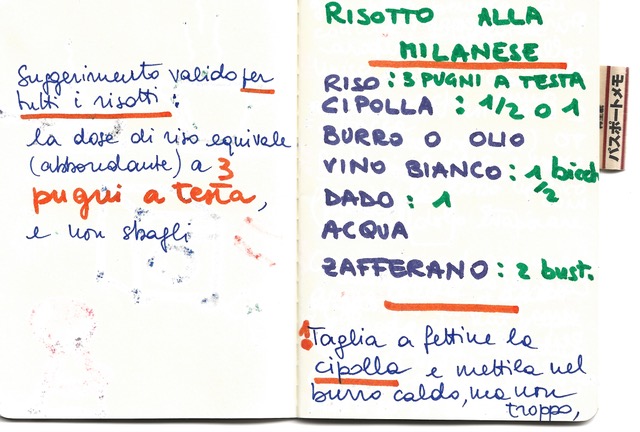 Suggerimento valido per
tutti i risotti :
la dose di riso equivale
(abbondante) a 3
pugni a testa,
e non sbagli
RISOTTO ALLA
MILANESE
RISO : 3 PUGNI A TESTA
CIPOLLA : 1/2 O 1
BURRO O OLIO
VINO BIANCO : 1 bicch
1/2
DADO : 1
ACQUA
ZAFFERANO : 2 bust.
! Taglia a fettine la
cipolla e mettila nel
burro caldo, ma non
troppo,
パスポートメモ